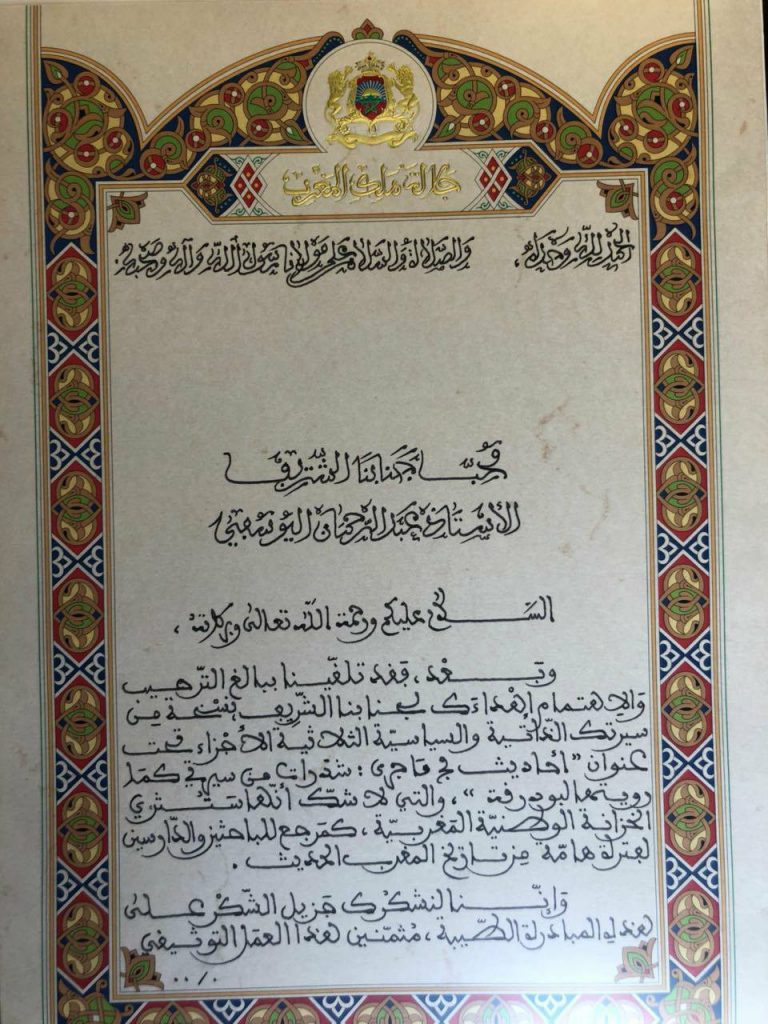 جلالة ملك المغرب
الحمد لله وحده، والصلاة والسلام على مولانا رسول الله وآله وصحبه.
محب جنابنا الشريف
الأستاذ عبد الرحمان اليوسفي
السلام عليكم ورحمة الله تعالى وبركاته،
وبعد، فقد تلقّينا ببالغ التّرحيب
والاهتمام إهداءك لجنابنا الشّريف نسخة من
سيرتك الذّاتيّة والسياسيّة الثلاثية الأجزاء تحت
عنوان "أحاديث في ما جرى: شذرات من سيرتي كما
رويتها لبودرقة"، والتي لا شكّ أنّها ستثري
الخزانة الوطنيّة المغربيّة، كمرجع للباحثين والدّارسين
لفترة هامّة من تاريخ المغرب الحديث.
وإنّنا لنشكرك جزيل الشّكر على
هذه المبادرة الطّيّبة، مثمّنين هذا العمل التّوثيقي
../.